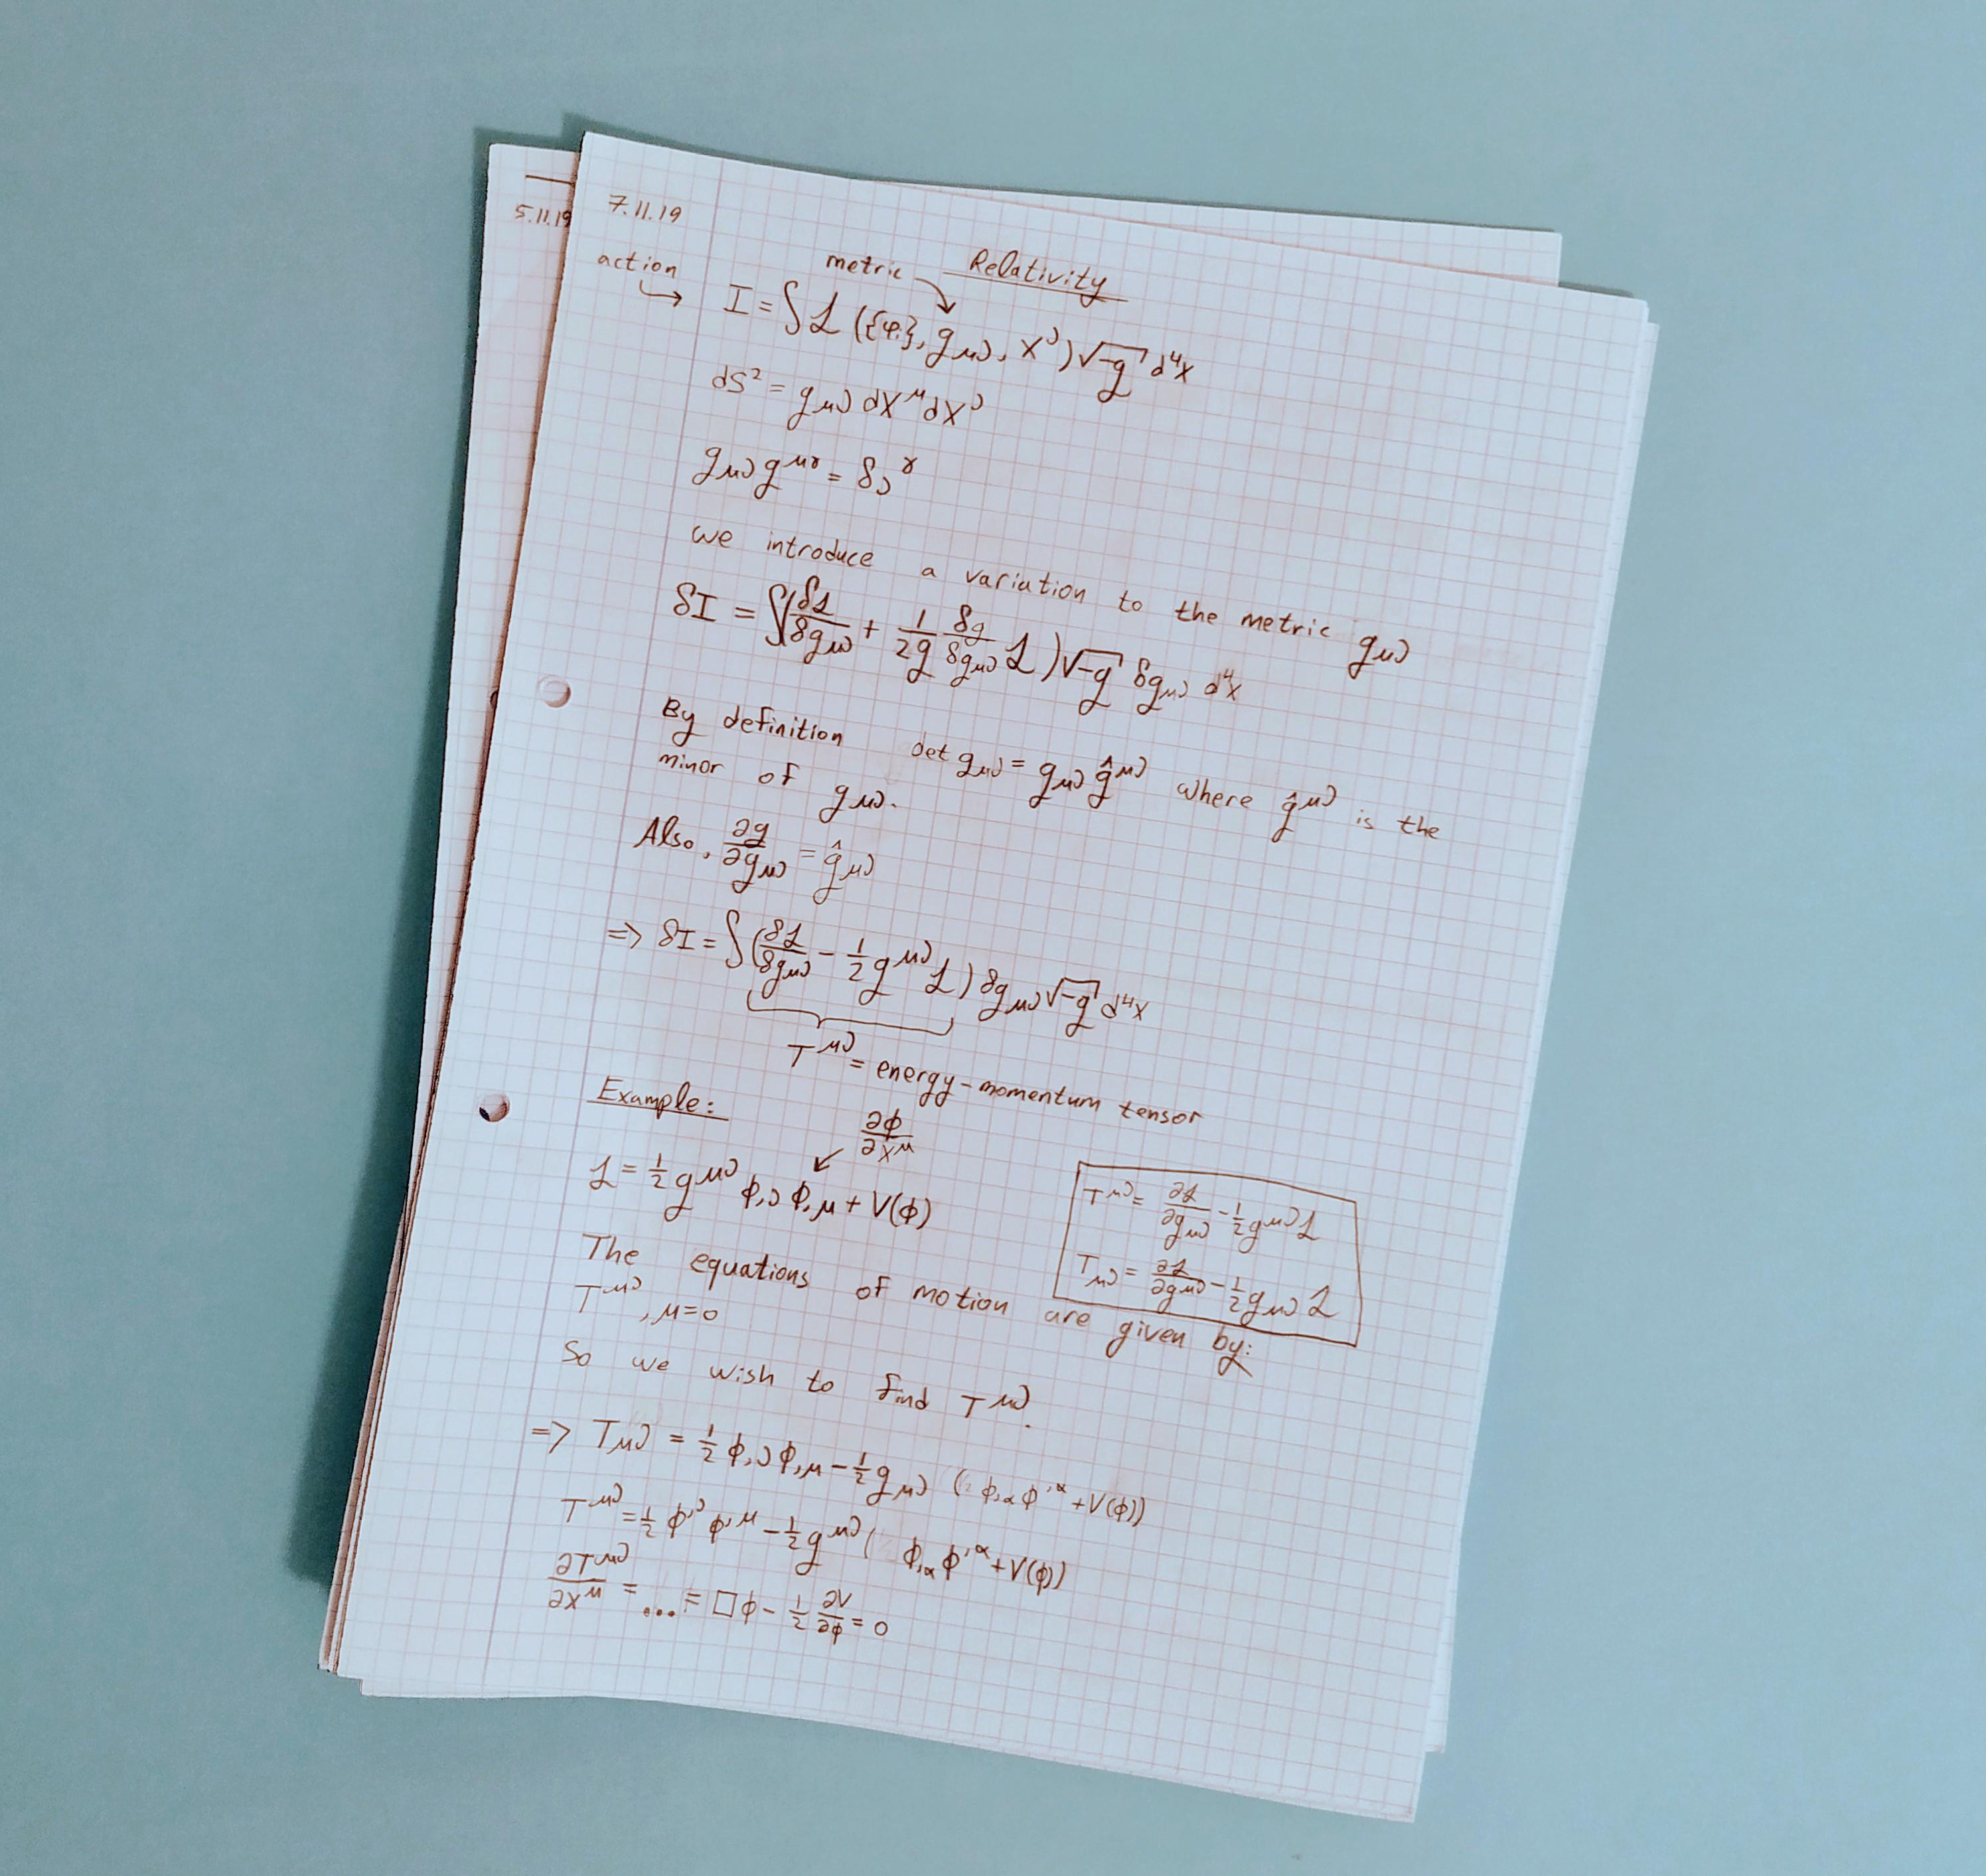 5.11.19
7.11.19
Relativity
action
metric
I = ∫ℒ ({φᵢ}, g_μν, x^ν) √-g d⁴x
ds² = g_μν dx^μ dx^ν
g_μν g^μγ = δ_ν^γ
we introduce a variation to the metric g_μν
δI = ∫(δℒ/δg_μν + 1/2g δg/δg_μν ℒ) √-g δg_μν d⁴x
By definition det g_μν = g_μν ĝ^μν where ĝ^μν is the
minor of g_μν.
Also, ∂g/∂g_μν = ĝ^μν
=> δI = ∫(δℒ/δg_μν - 1/2 g^μν ℒ) δg_μν √-g d⁴x
T^μν = energy-momentum tensor
Example:
∂ϕ/∂x^μ
ℒ = 1/2 g^μν ϕ,ν ϕ,μ + V(ϕ)
T^μν = ∂ℒ/∂g_μν - 1/2 g^μν ℒ
T_μν = ∂ℒ/∂g^μν - 1/2 g_μν ℒ
The equations of motion are given by:
T^μν,μ = 0
So we wish to find T^μν.
=> T_μν = 1/2 ϕ,ν ϕ,μ - 1/2 g_μν (ϕ,α ϕ^,α + V(ϕ))
T^μν = 1/2 ϕ^,ν ϕ^,μ - 1/2 g^μν (ϕ,α ϕ^,α + V(ϕ))
∂T^μν/∂x^μ = ... = □ϕ - 1/2 ∂V/∂ϕ = 0